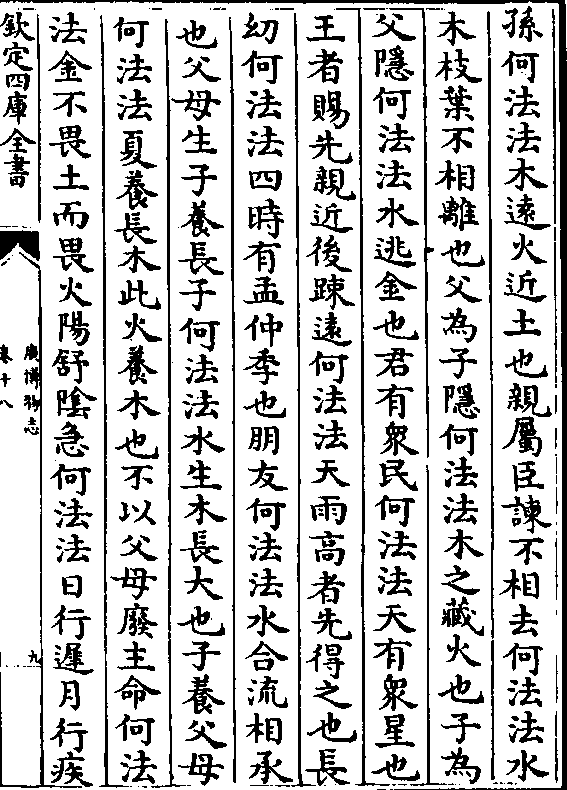 孫何法法木遠火近土也親屬臣諫不相去何法法水
木枝葉不相離也父為子隱何法法木之藏火也子為
父隱何法法水逃金也君有衆民何法法天有衆星也
王者賜先親近後踈遠何法法天雨高者先得之也長
幼何法法四時有孟仲季也朋友何法法水合流相承
也父母生子養長子何法法水生木長大也子養父母
何法法夏養長木此火養木也不以父母廢主命何法
法金不畏土而畏火陽舒陰急何法法日行遲月行疾
欽定四庫全書
廣博物志
卷十八
九